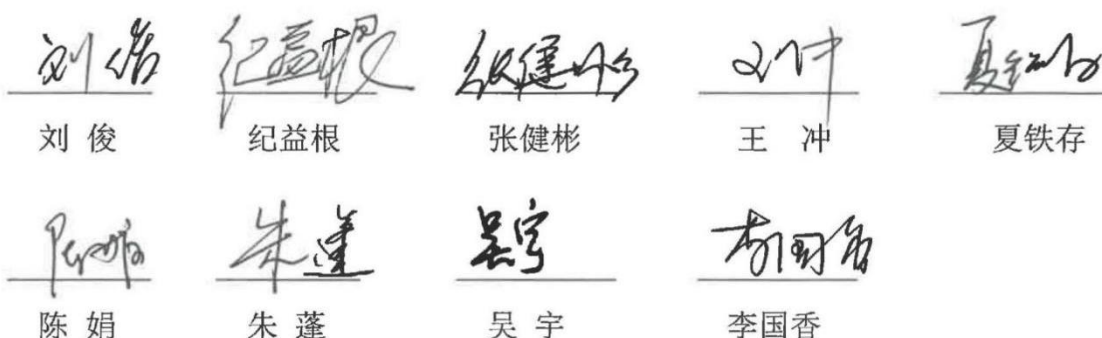 刘俊 纪益根 张健彬 王冲 夏铁存
刘 俊 纪益根 张健彬 王 冲 夏铁存
陈娟 朱蓬 吴宇 李国香
陈 娟 朱 蓬 吴 宇 李国香